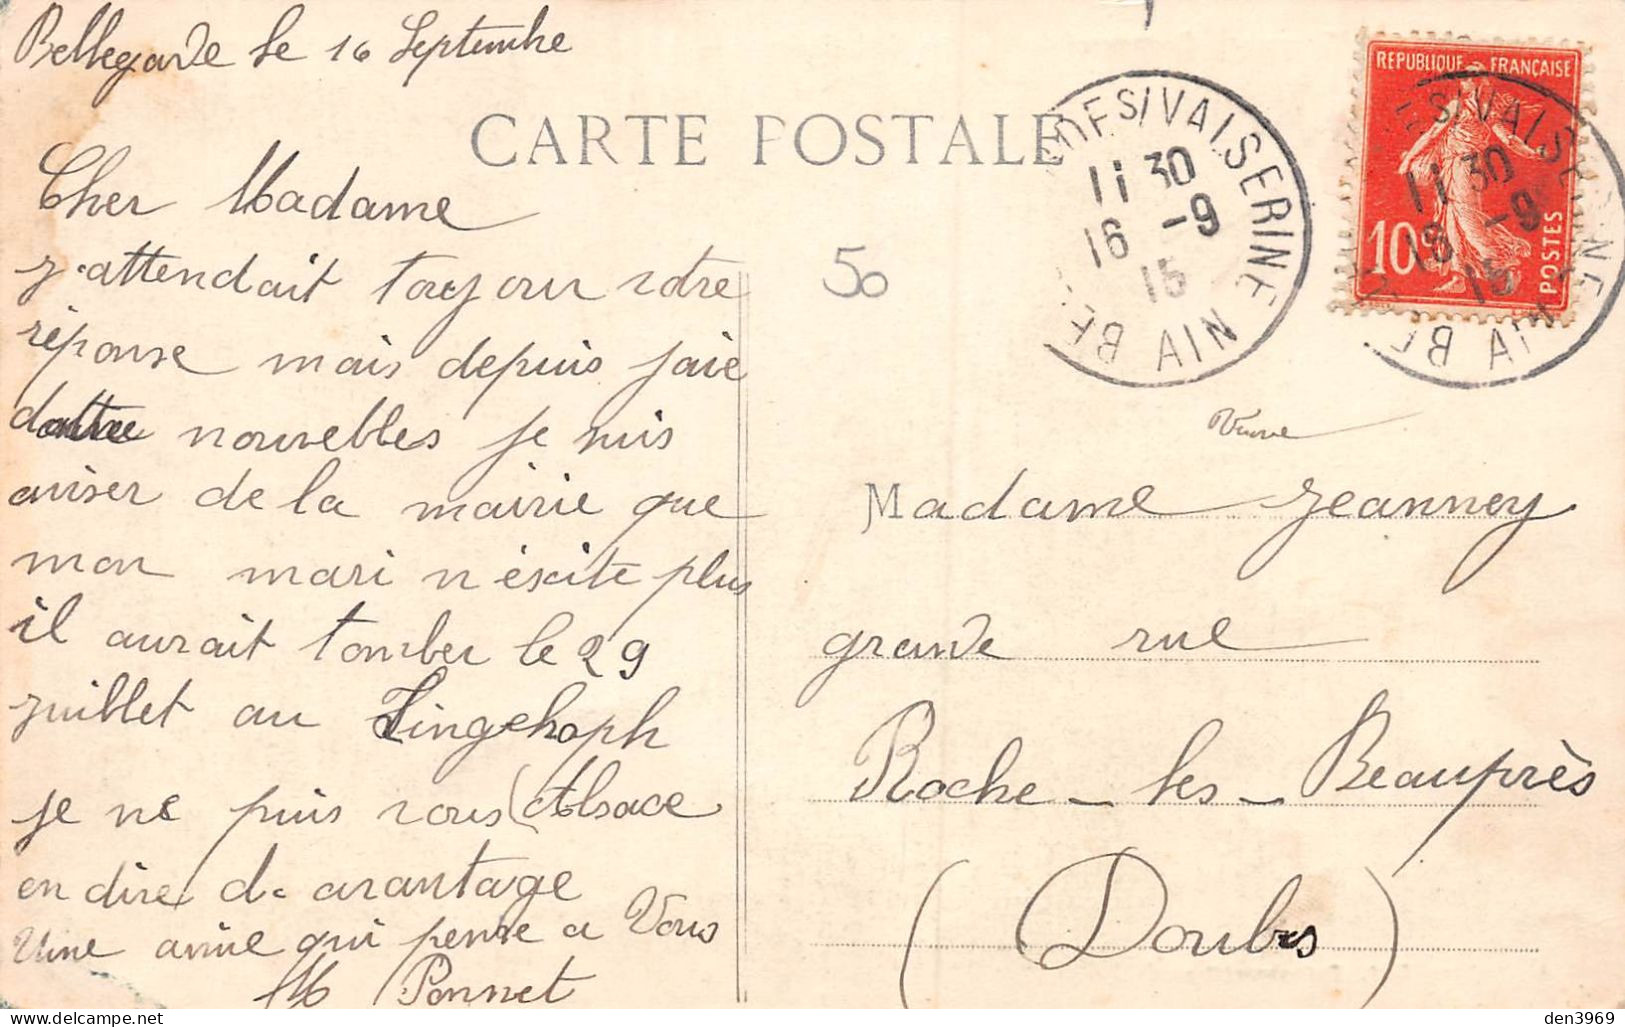 Bellegarde le 16 Septembre
CARTE POSTALE
Cher Madame
j'attendait toujour votre
réponse mais depuis jaie
nouvelles je suis
aviser de la mairie que
mon mari n'éxite plus
il aurait tomber le 29
juillet au Lingekoph
je ne puis vous (Alsace
en dire d. avantage
Une amie qui pense a Vous
M Ponnet
50
BE
S/VALSERINE
11 30
16 -9
15
AIN
REPUBLIQUE FRANÇAISE
10c
POSTES
S/VALSERINE
11 30
16 -9
15
BE
AIN
Veuve
Madame Jeanney
grande rue
Roche-les-Beauprès
(Doubs)
den3969